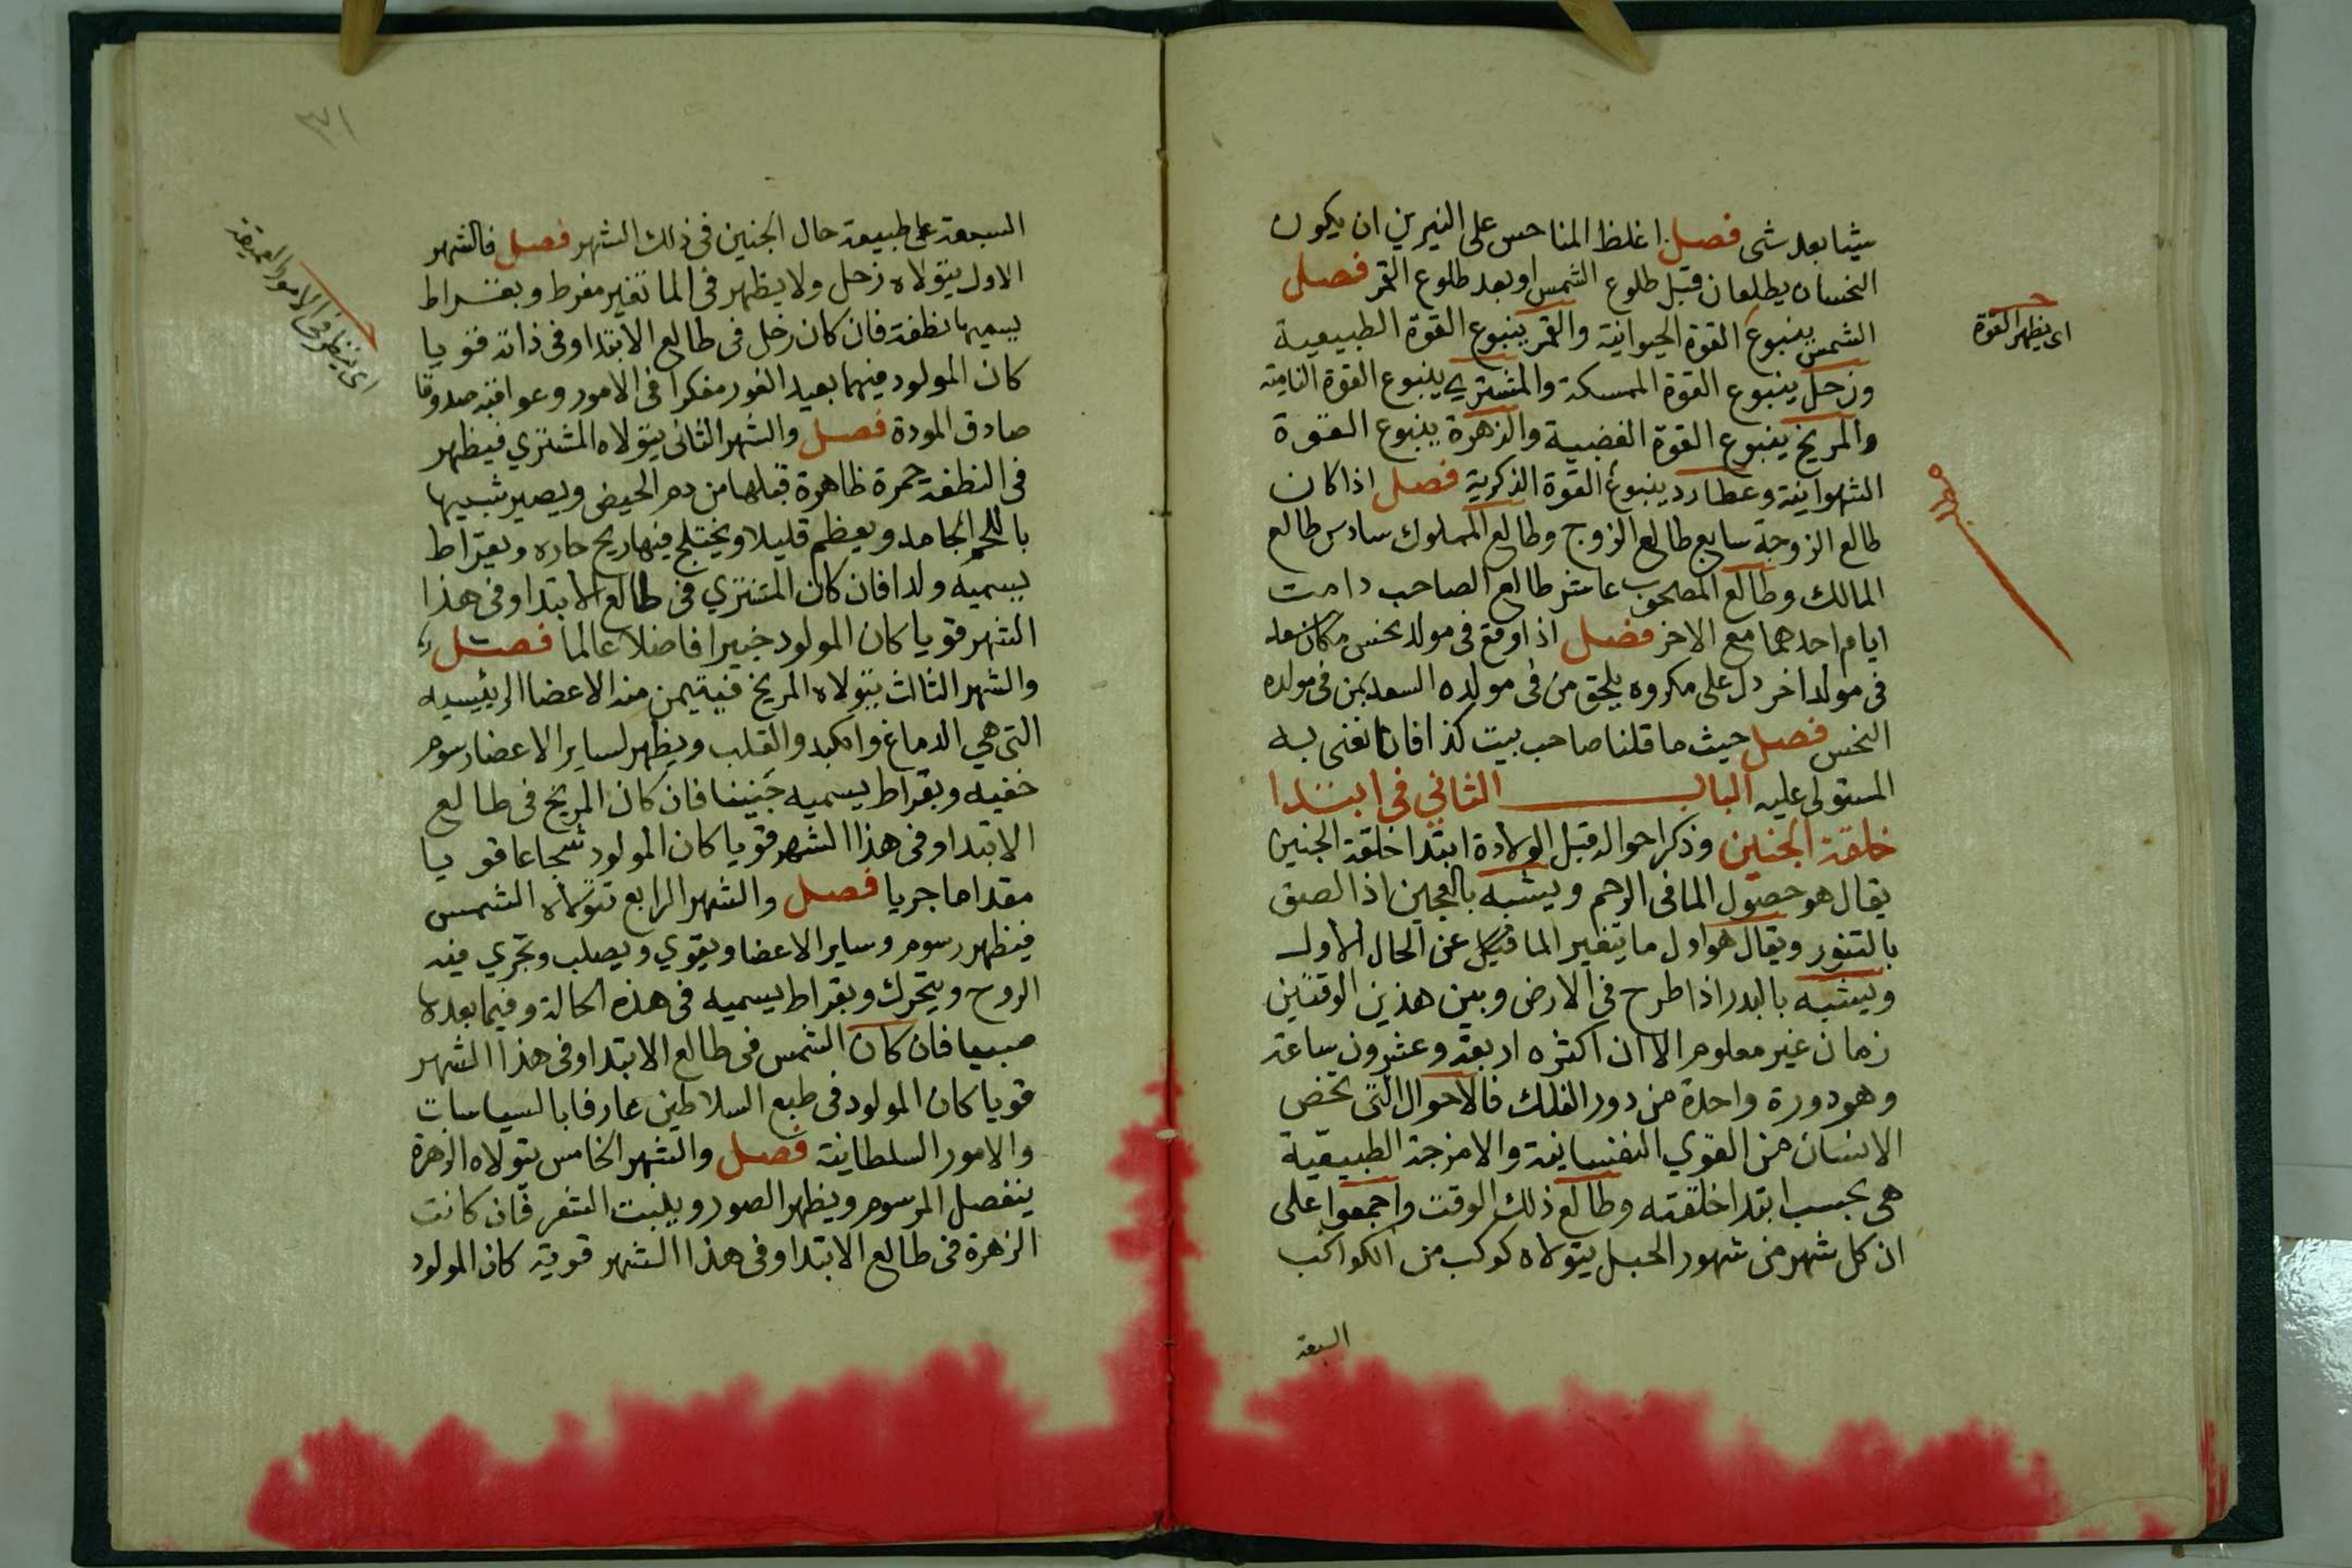 شيئا بعد شى فصل اغلظ المناحس على النيرين ان يكون
النحسان يطلعان قبل طلوع الشمس او بعد طلوع القمر فصل
الشمس ينبوع القوة الحيوانية والقمر ينبوع القوة الطبيعية
وزحل ينبوع القوة الممسكة والمشتري ينبوع القوة النامية
والمريخ ينبوع القوة الغضبية والزهرة ينبوع القوة
الشهوانية وعطارد ينبوع القوة الذكرية فصل اذا كان
طالع الزوجة سابع طالع الزوج وطالع المملوك سادس طالع
المالك وطالع المصحوب عاشر طالع الصاحب دامت
ايام احدهما مع الاخر فصل اذا وقع فى مولد نحس مكان سعد
فى مولد اخر دل على مكروه يلحق من فى مولده السعد بمن فى مولده
النحس فصل حيث ما قلنا صاحب بيت كذا فانا نعنى به
المستولى عليه الباب الثاني فى ابتدا
خلقة الجنين وذكر احواله قبل الولادة ابتدا خلقة الجنين
يقال هو حصول الما فى الرحم ويشبه بالعجين اذا لصق
بالتنور ويقال هو اول ما يتغير الما قليلا عن الحال الاول
ويشبه بالبدر اذا طرح فى الارض وبين هذين الوقتين
زمان غير معلوم الا ان اكثره اربعة وعشرون ساعة
وهو دورة واحدة من دور الفلك فالاحوال التى تخص
الانسان من القوي النفسانية والامزجة الطبيعية
هى بحسب ابتدا خلقته وطالع ذلك الوقت واجمعوا على
ان كل شهر من شهور الحبل يتولاه كوكب من الكواكب
السبعة
اى يظهر القوة
٣١
السبعة على طبيعة حال الجنين فى ذلك الشهر فصل فالشهر
الاول يتولاه زحل ولا يظهر فى الما تغير مفرط وبقراط
يسميها نطفة فان كان زحل فى طالع الابتدا وفى ذاته قويا
كان المولود فهما بعيد الغور مفكرا فى الامور وعواقبه صدوقا
صادق المودة فصل والشهر الثانى يتولاه المشتري فيظهر
فى النطفة حمرة ظاهرة قبلها من دم الحيض ويصير شبيها
باللحم الجامد ويعظم قليلا ويختلج فيها ريح حاره وبقراط
يسميه ولدا فان كان المشتري فى طالع الابتدا وفى هذا
الشهر قويا كان المولود خبيرا فاضلا عالما فصل
والشهر الثالث يتولاه المريخ فيتيمن منه الاعضا الرئيسيه
التى هي الدماغ والكبد والقلب ويظهر لساير الاعضا رسوم
خفيه وبقراط يسميه جنينا فان كان المريخ فى طالع
الابتدا وفى هذا الشهر قويا كان المولود شجاعا قويا
مقداما جريا فصل والشهر الرابع تتولاه الشمس
فيظهر رسوم وساير الاعضا ويقوي ويصلب وتجري فيه
الروح ويتحرك وبقراط يسميه فى هذه الحالة وفيما بعدها
صبيا فان كان الشمس فى طالع الابتدا وفى هذا الشهر
قويا كان المولود فى طبع السلاطين عارفا بالسياسات
والامور السلطانية فصل والشهر الخامس يتولاه الزهرة
ينفصل المرسوم ويظهر الصور ويلبت الشعر فان كانت
الزهرة فى طالع الابتدا وفى هذا الشهر قوية كان المولود
اى ينظر فى الامور العميقة